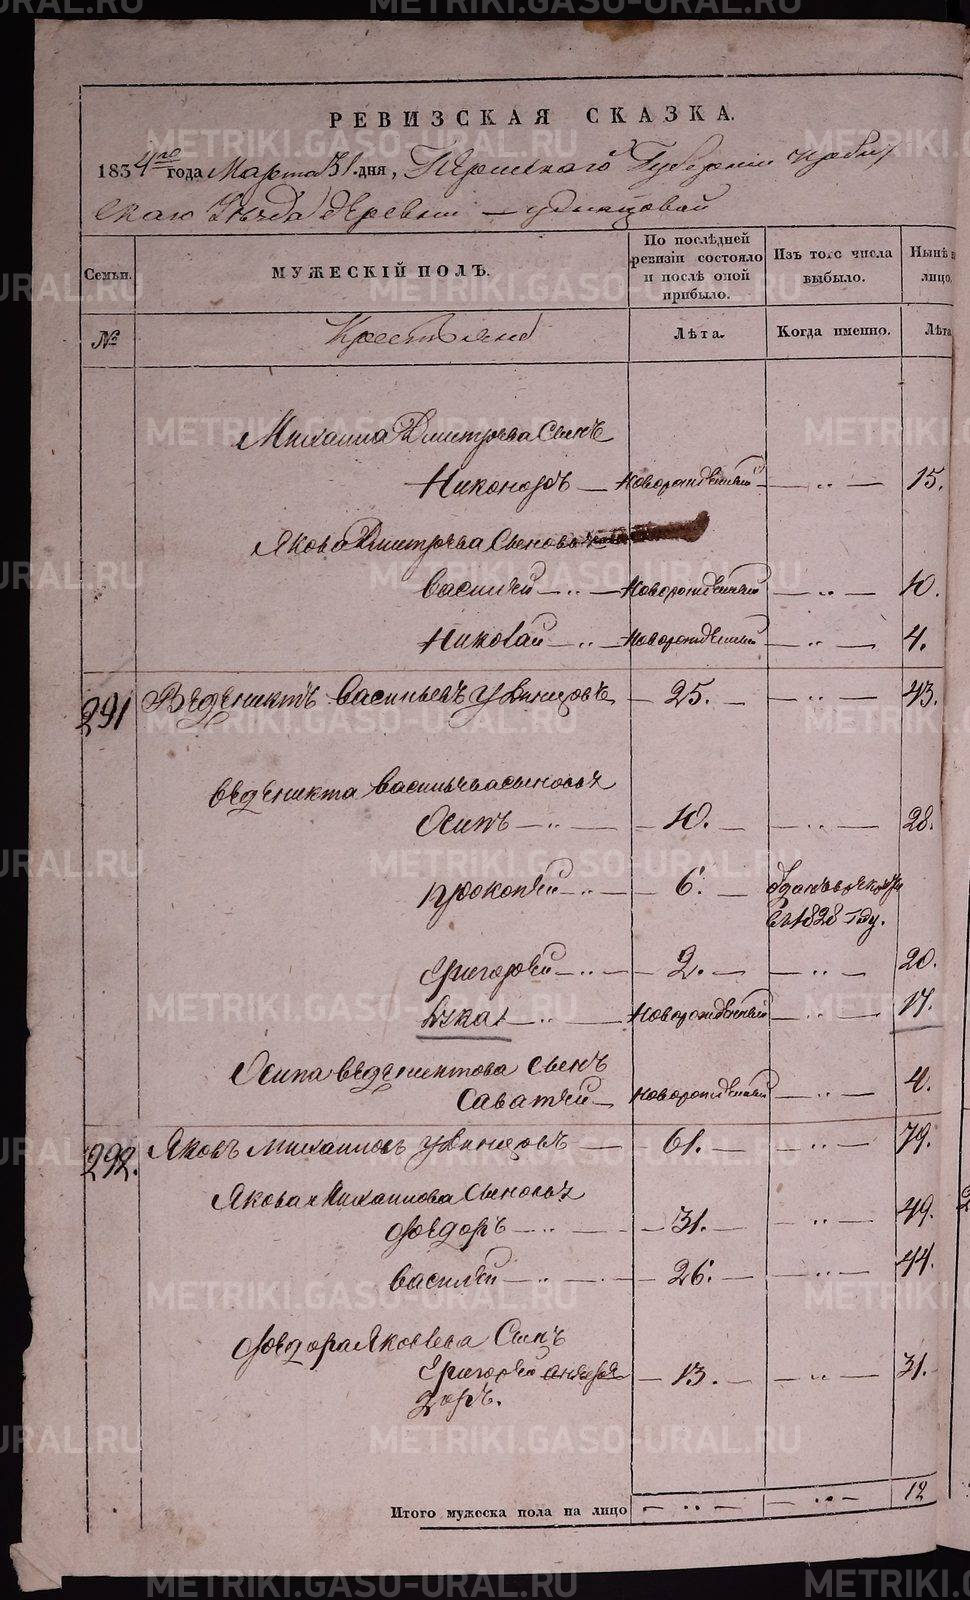 РЕВИЗСКАЯ СКАЗКА.
1834го года Марта 31. дня, Пермской Губернии Ирбит
скаго Уезда деревни — удинцовой
Семьи. МУЖЕСКІЙ ПОЛЪ. По послѣдней ревизіи состояло и послѣ оной прибыло. Изъ того числа выбыло. Нынѣ на лицо.
№ Крестьяне Лѣта. Когда именно. Лѣта
Михаила Дмитрева Сынъ
Никоноръ — новорожденный — „ — 15.
Якова Дмитрева Сыновья
Василей — „ — новорожденный — „ — 10.
Николай — „ новорожденный — „ — 4.
291 Веденихтъ Васильевъ удинцовъ — 25. — — „ — 43.
Веденихта Васильева сыновья
Осипъ — „ — — 10. — — „ — 28.
Прокопей — „ — 6. — въ 1828 году.
Григорей — „ — 2. — — „ — 20.
Лука — „ — новорожденный — „ — 17.
Осипа Веденихтова Сынъ
Саватей — новорожденный — „ — 4.
292. Яковъ михаиловъ удинцовъ — 61. — „ — 79.
Якова Михаилова Сыновья
Федоръ — „ — — 31. — — „ — 49.
Василей — „ — — 26. — — „ — 44.
Федора Яковлева Сынъ
Григорей — 13. — — „ — 31.
Итого мужеска пола на лицо — „ — — „ — 12
METRIKI.GASO-URAL.RU